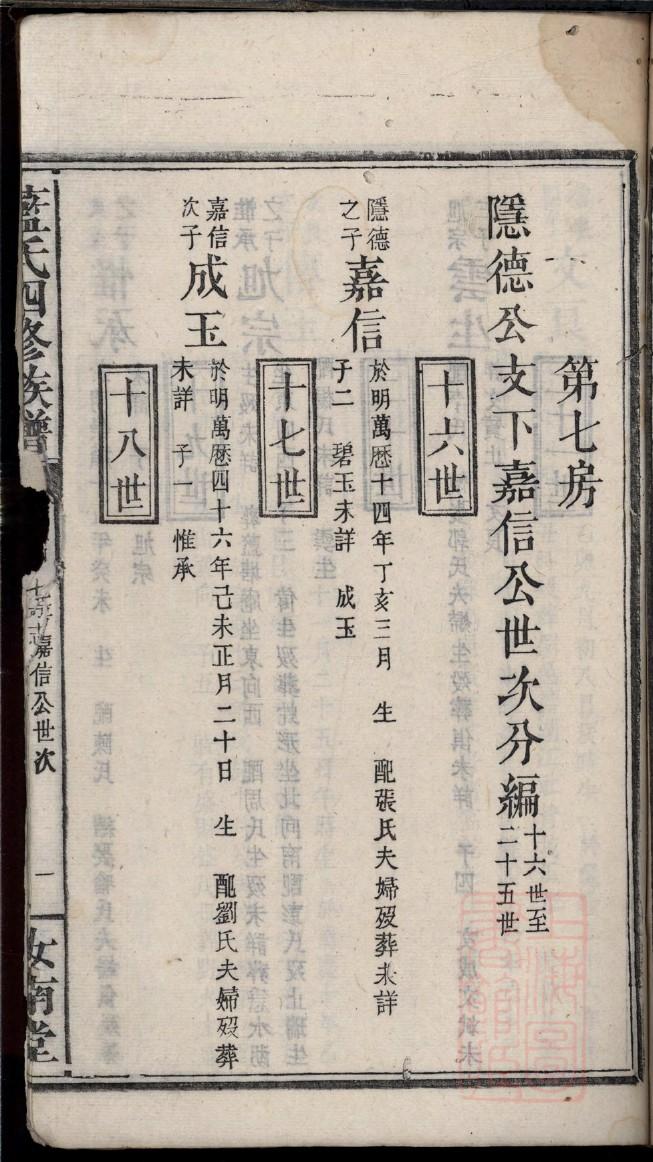 第七房
隱德公支下嘉信公世次分編
十六世至
二十五世
十六世
隱德
之子
嘉信
於明萬曆十四年丁亥三月 生 配張氏夫婦歿葬未詳
子二 碧玉未詳 成玉
十七世
嘉信
次子
成玉
於明萬曆四十六年己未正月二十日 生 配劉氏夫婦歿葬
未詳 子一 惟承
十八世
藍氏四修族譜
嘉信公世次
一
汝南堂